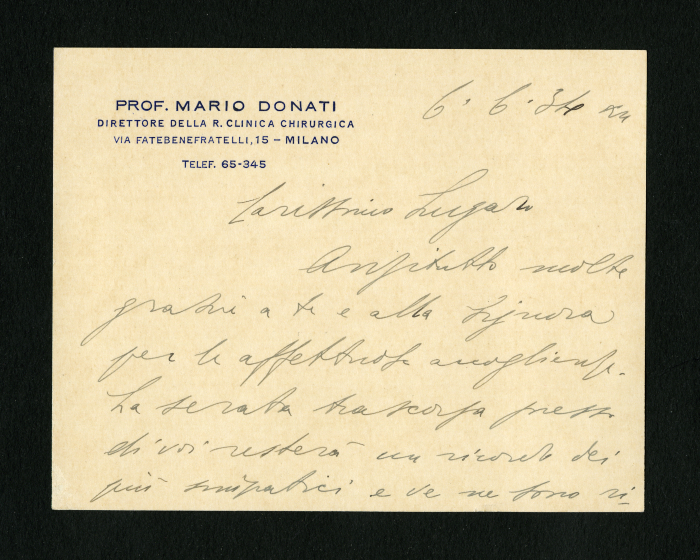 PROF. MARIO DONATI
DIRETTORE DELLA R. CLINICA CHIRURGICA
VIA FATEBENEFRATELLI, 15 – MILANO
TELEF. 65-345
6. 6. 34 XII
Carissimo Lugaro
Anzitutto molte
grazie a te e alla Signora
per le affettuose accoglienze.
La serata trascorsa presso
di voi resterà un ricordo dei
più simpatici e ve ne sono ri-